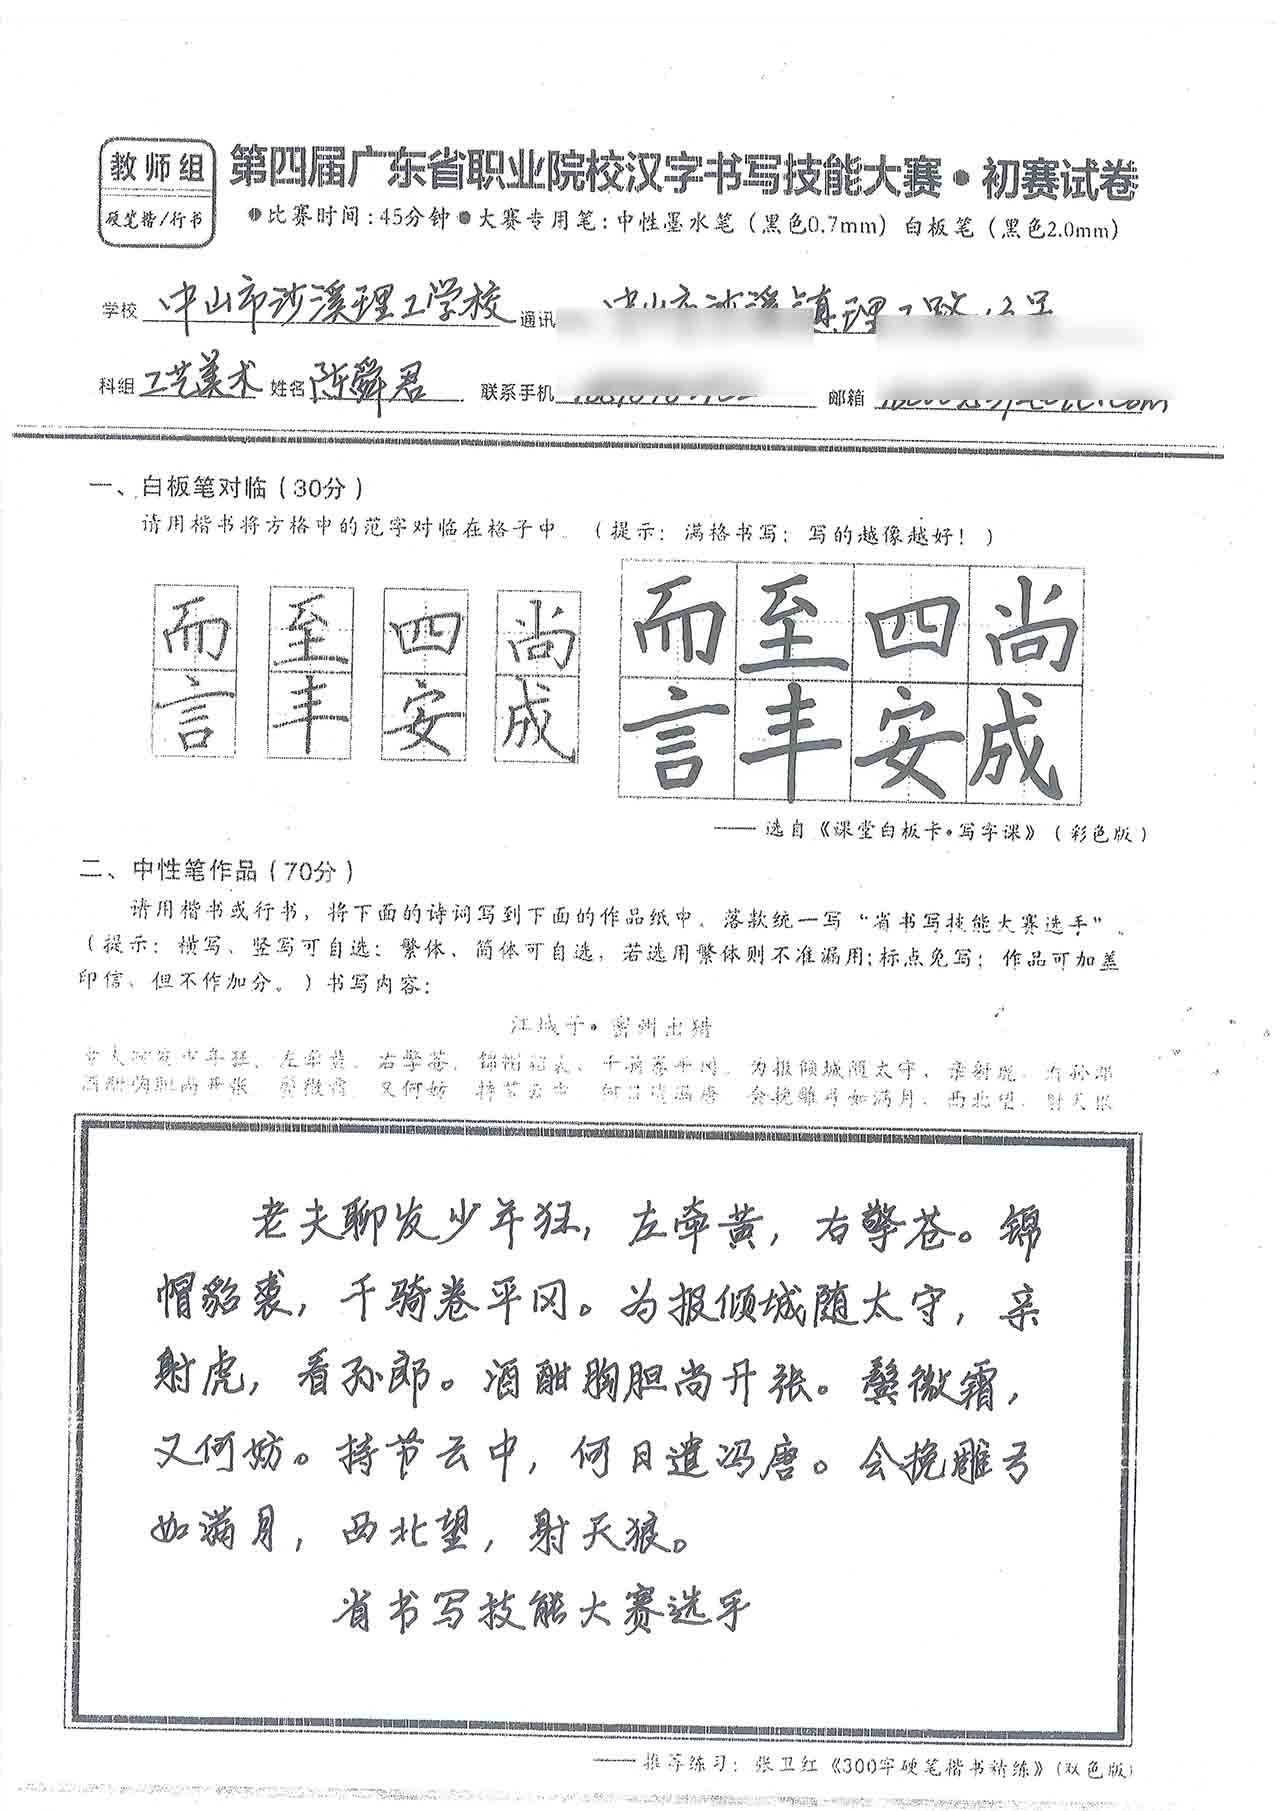 教师组
硬笔楷/行书
第四届广东省职业院校汉字书写技能大赛·初赛试卷
●比赛时间:45分钟●大赛专用笔:中性墨水笔(黑色0.7mm)白板笔(黑色2.0mm)
学校 中山市沙溪理工学校 通讯
科组 工艺美术 姓名 陈舜君 联系手机 邮箱
一、白板笔对临(30分)
请用楷书将方格中的范字对临在格子中。(提示:满格书写;写的越像越好!)
而 至 四 尚 而 至 四 尚
言 丰 安 成 言 丰 安 成
——选自《课堂白板卡·写字课》(彩色版)
二、中性笔作品(70分)
请用楷书或行书,将下面的诗词写到下面的作品纸中。落款统一写“省书写技能大赛选手”。
(提示:横写、竖写可自选;繁体、简体可自选,若选用繁体则不准漏用;标点免写;作品可加盖
印信、但不作加分。)书写内容:
江城子·密州出猎
老夫聊发少年狂,左牵黄,右擎苍,锦帽貂裘,千骑卷平冈。为报倾城随太守,亲射虎,看孙郎
酒酣胸胆尚开张 鬓微霜,又何妨 持节云中 何日遣冯唐 会挽雕弓如满月,西北望,射天狼
老夫聊发少年狂,左牵黄,右擎苍。锦
帽貂裘,千骑卷平冈。为报倾城随太守,亲
射虎,看孙郎。酒酣胸胆尚开张。鬓微霜,
又何妨。持节云中,何日遣冯唐。会挽雕弓
如满月,西北望,射天狼。
省书写技能大赛选手
——推荐练习:张卫红《300字硬笔楷书精练》(双色版)